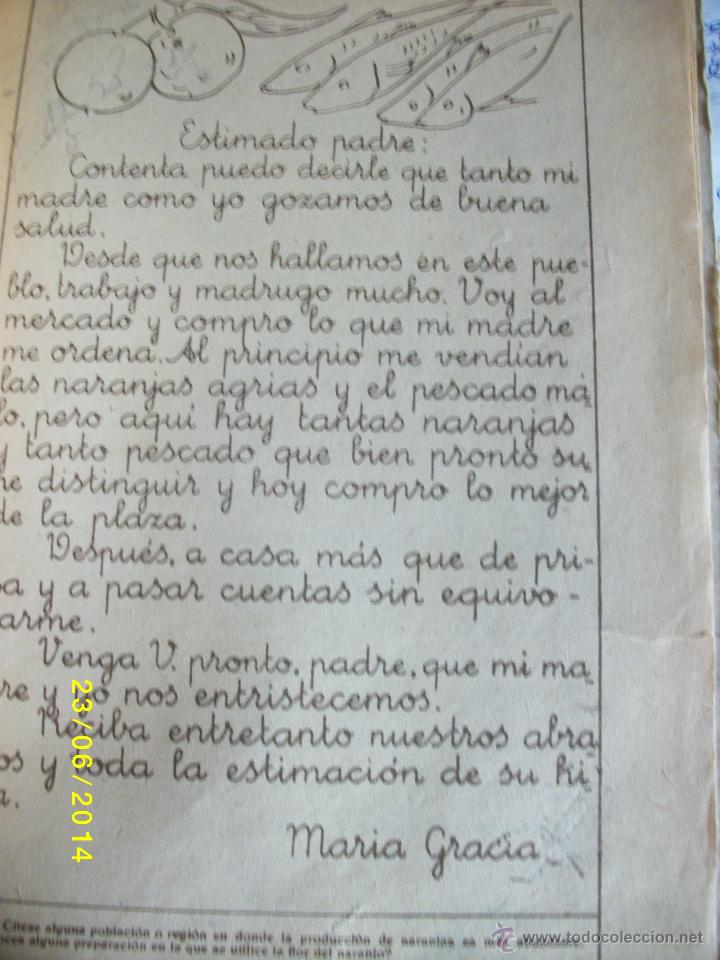 Estimado padre:
Contenta puedo decirle que tanto mi
madre como yo gozamos de buena
salud.
Desde que nos hallamos en este pue-
blo, trabajo y madrugo mucho. Voy al
mercado y compro lo que mi madre
me ordena. Al principio me vendían
las naranjas agrias y el pescado ma-
lo, pero aquí hay tantas naranjas
y tanto pescado que bien pronto su-
pe distinguir y hoy compro lo mejor
de la plaza.
Después, a casa más que de pri-
sa y a pasar cuentas sin equivo-
carme.
Venga V. pronto, padre, que mi ma-
dre y yo nos entristecemos.
Reciba entretanto nuestros abra-
zos y toda la estimación de su hi-
ja.
Maria Gracia
23/06/2014
Cítese alguna población o región en donde la producción de naranjas es
alguna preparación en la que se utilice la flor del naranjo?
www.todocoleccion.net